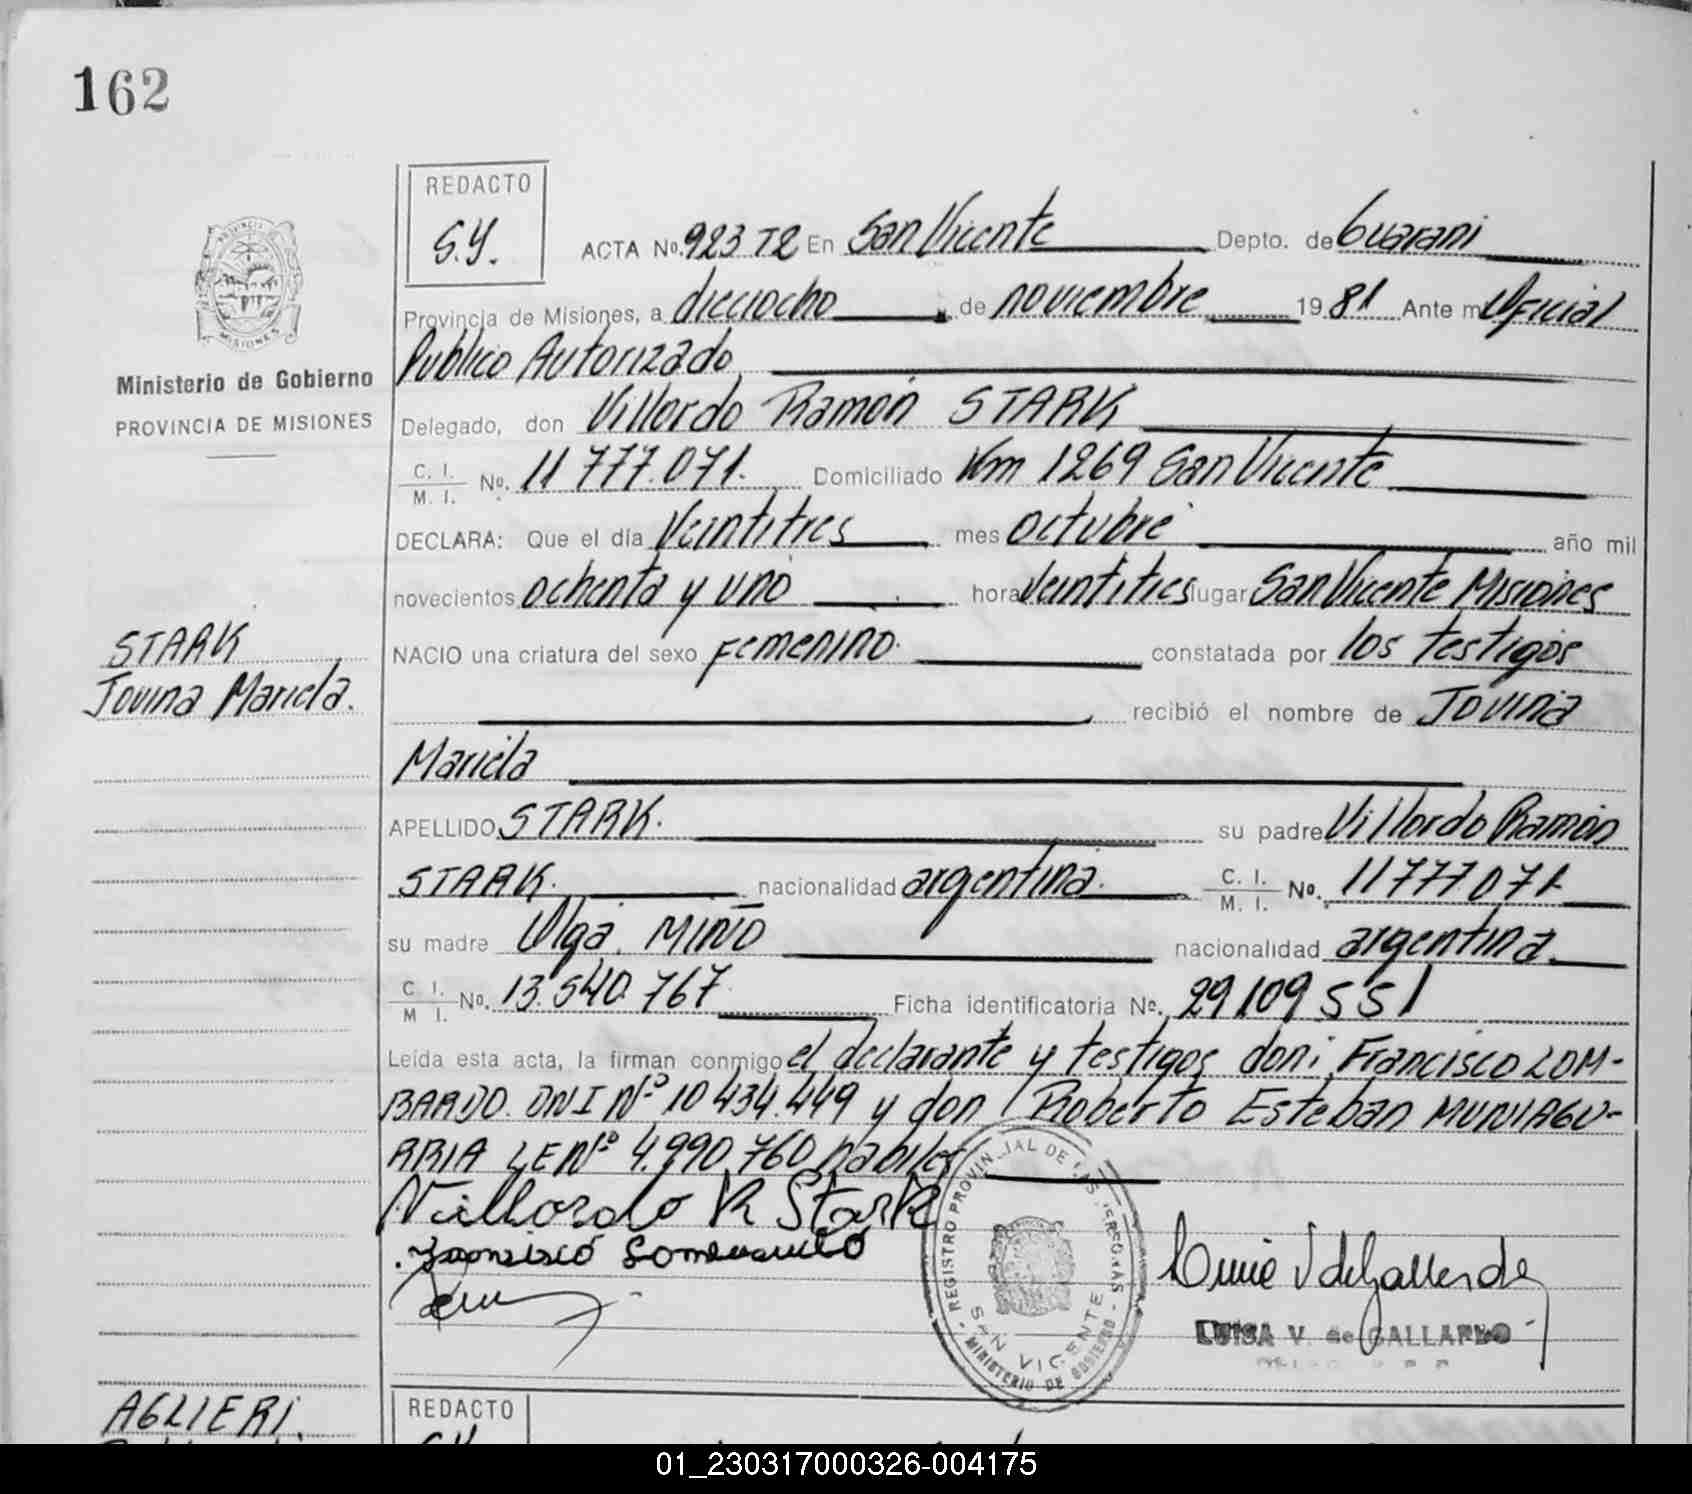 162
REDACTO
S.Y.
ACTA No. 923 T2 En San Vicente Depto. de Guarani
Provincia de Misiones, a dieciocho de noviembre 1981 Ante mi Oficial
Publico Autorizado
Ministerio de Gobierno
PROVINCIA DE MISIONES
Delegado, don Villordo Ramón STARK
C. I.
M. I. No. 11 777.071. Domiciliado Km 1269 San Vicente
DECLARA: Que el día Veintitres mes octubre año mil
novecientos ochenta y uno hora Veintitres lugar San Vicente Misiones
NACIO una criatura del sexo femenino. constatada por los testigos
STARK
Jovina Mariela.
recibió el nombre de Jovina
Mariela
APELLIDO STARK. su padre Villordo Ramón
STARK. nacionalidad argentina. C. I.
M. I. No. 11777071
su madre Olga MIÑO nacionalidad argentina.
C. I.
M I. No. 13.540.767 Ficha identificatoria No. 29109551
Leída esta acta, la firman conmigo el declarante y testigos don: Francisco LOM-
BARDO. DNI Nº 10 434.449 y don Roberto Esteban MUNIAGU-
RRIA LE Nº 4.990.760 habiles
Villordo R Stark
Francisco Lombardo
REGISTRO PROVINCIAL DE LAS PERSONAS
SAN VICENTE
MINISTERIO DE GOBIERNO
LUISA V. de GALLARDO
AGLIERI.
REDACTO
01_230317000326-004175